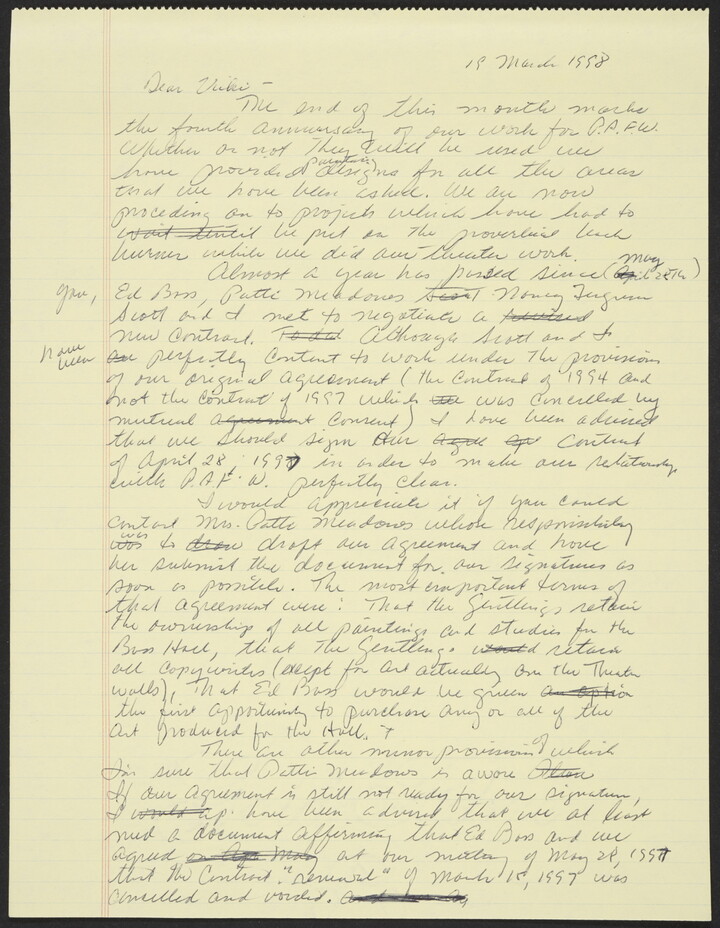 19 March 1998
Dear Vicki —
The end of this month marks
the fourth anniversary of our work for P.A.F.W.
Whether or not they will be used we
have provided painting designs for all the areas
that we have been asked. We are now
proceding on to projects which have had to
wait until be put on the proverbial back
burner while we did our theater work.
Almost a year has passed since (April May 28th)
you, Ed Bass, Patti Meadows Scott Nancy Ferguson
Scott and I met to negotiate a revised
new contract. Although Scott and I
have been perfectly content to work under the provisions
of our original agreement (the contract of 1994 and
not the contract of 1997 which was cancelled by
mutual agreement consent) I have been advised
that we should sign our contract
of April 28 1997 in order to make our relationship
with P.A.F.W. perfectly clear.
I would appreciate it if you could
contact Mrs. Patti Meadows whose responsibility
was was to draw draft our agreement and have
her submit the document for our signatures as
soon as possible. The most important terms of
that agreement were: That the Gentlings retain
the ownership of all paintings and studies for the
Bass Hall, that the Gentlings would retain
all copywrites (except for art actually on the Theater
walls), that Ed Bass would be given an option
the first opportunity to purchase any or all of the
art produced for the Hall. +
There are other minor provisions of which
I'm sure that Patti Meadows is aware
If our agreement is still not ready for our signature,
I would have been advised that we at least
need a document affirming that Ed Bass and we
agreed on May at our meeting of May 28, 1997
that the contract "renewal" of March 15, 1997 was
cancelled and voided.